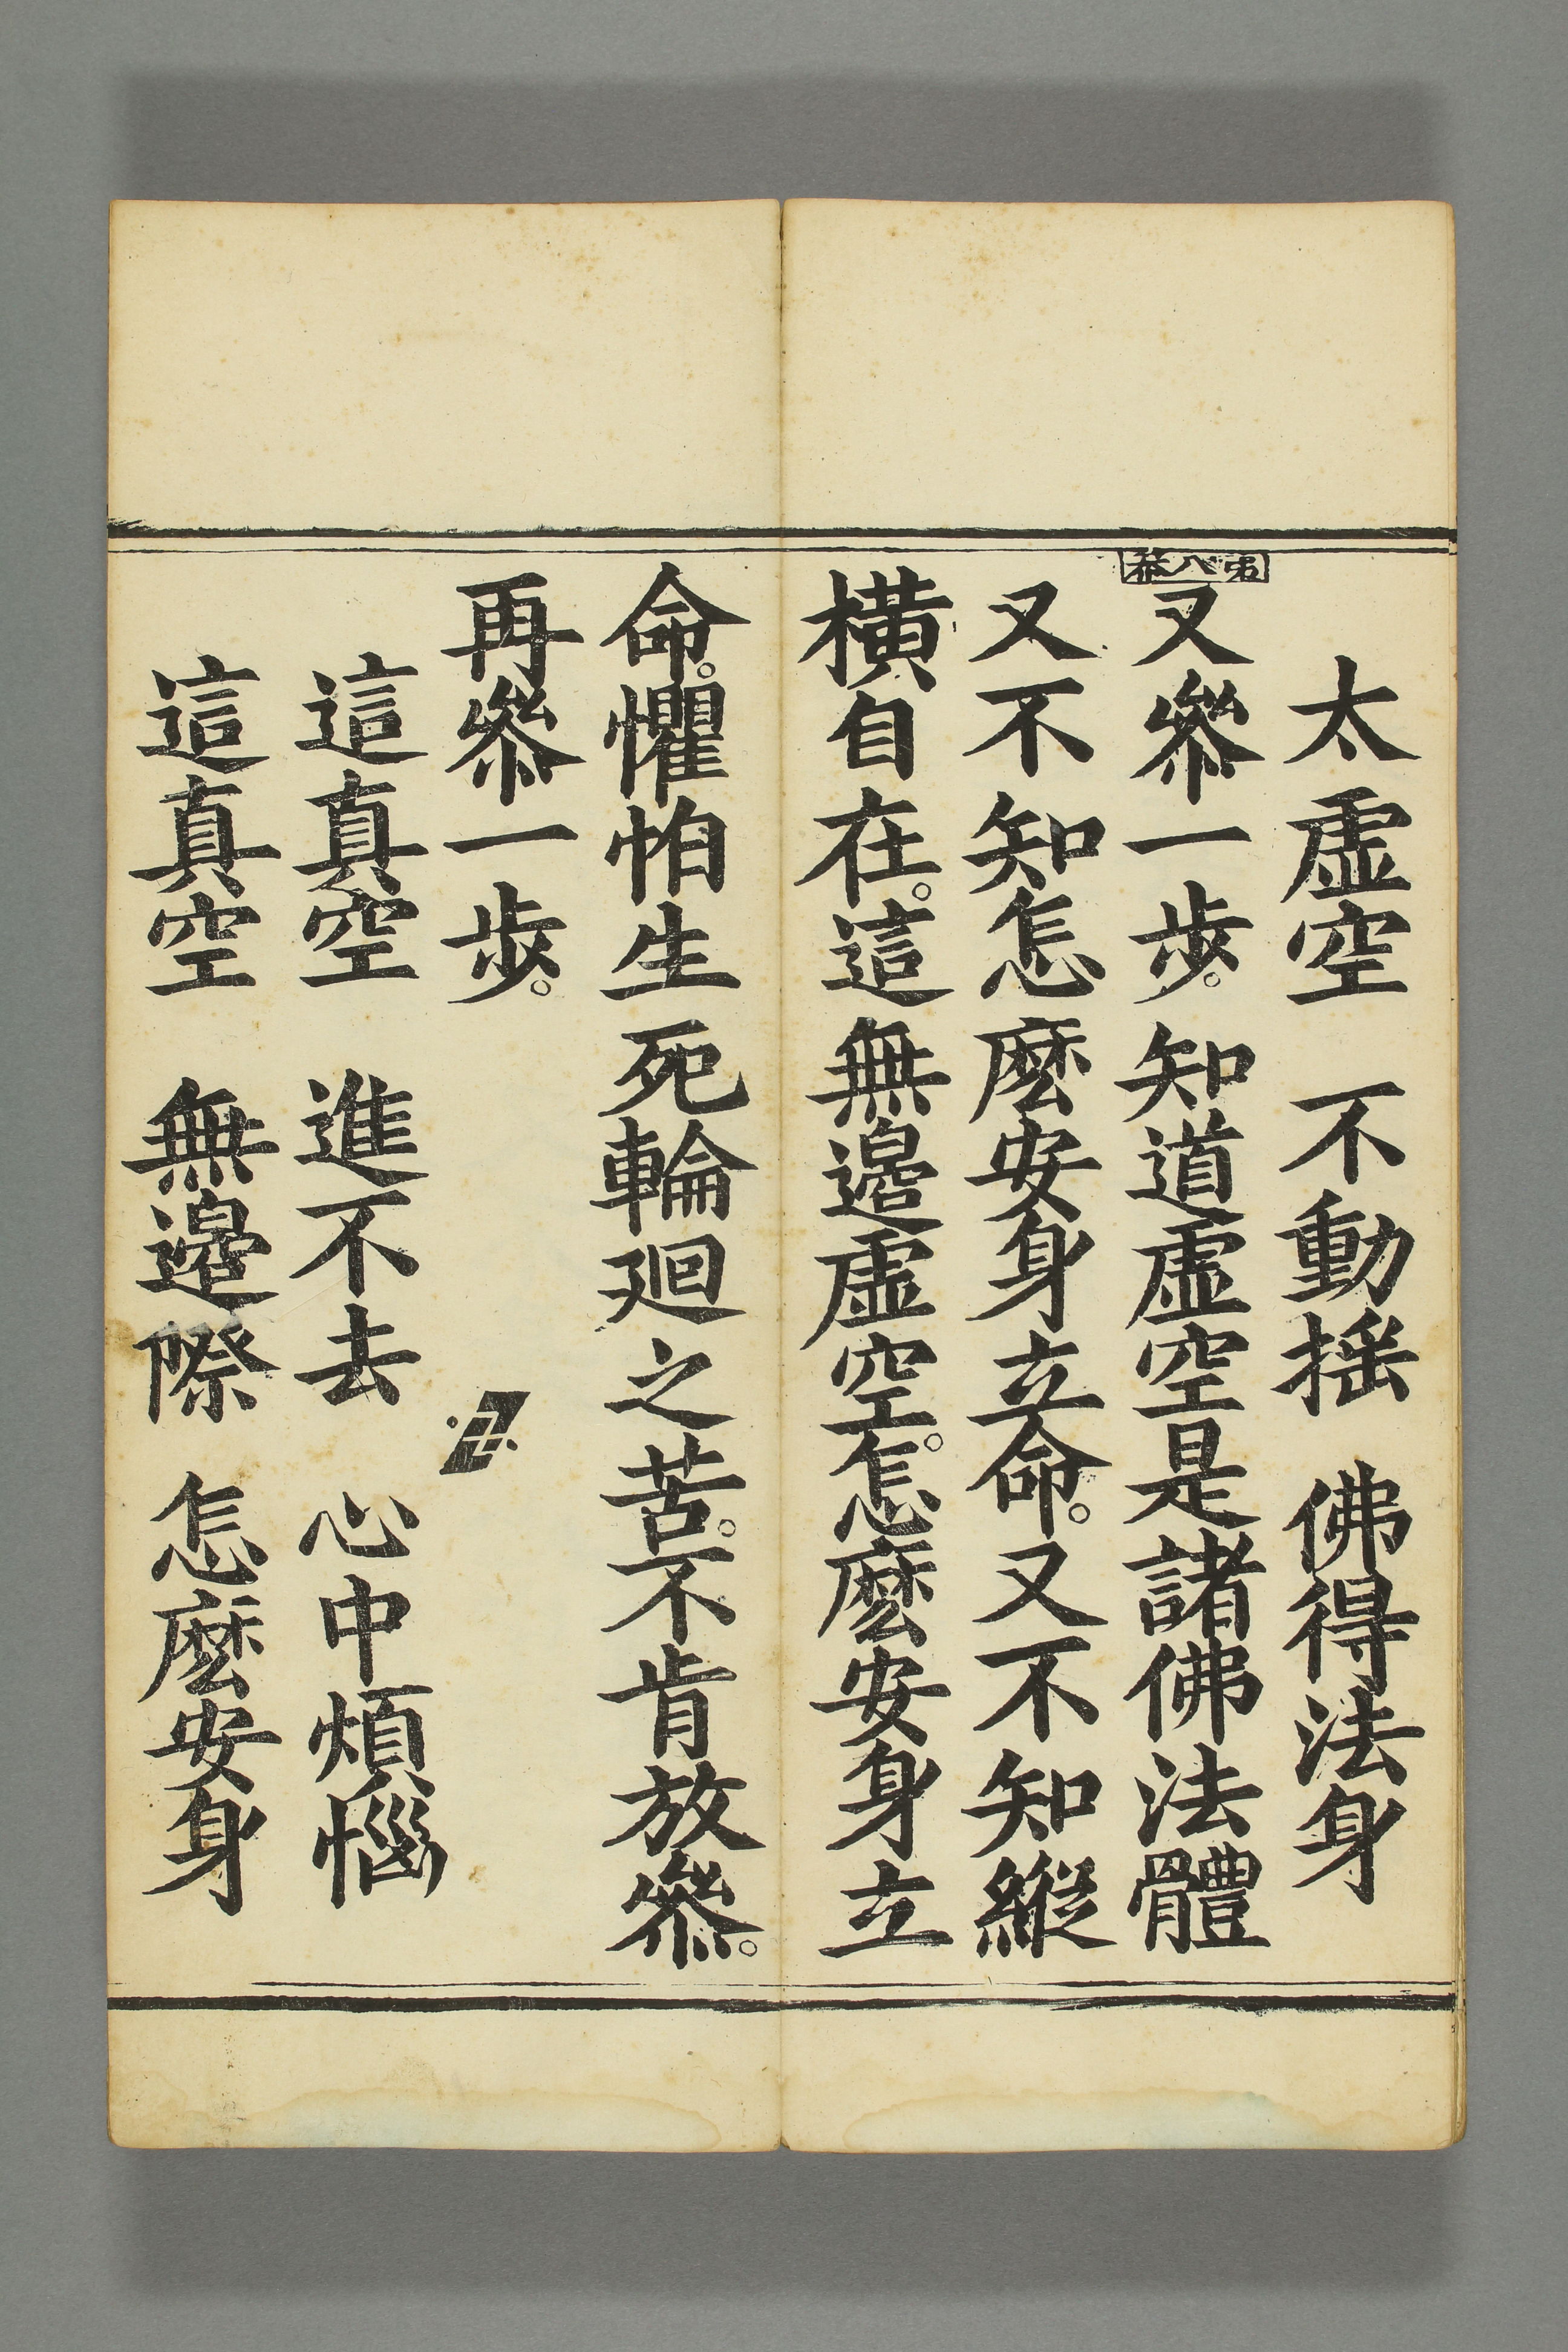 太虛空　不動揺　佛得法身
弟八叅
又叅一步。知道虛空是諸佛法體
又不知怎麽安身立命。又不知縱
橫自在。這無邉虛空。怎麽安身立
命。懼怕生死輪廻之苦。不肯放叅。
再叅一步。
這真空　進不去　心中煩惱
這真空　無邉際　怎麽安身